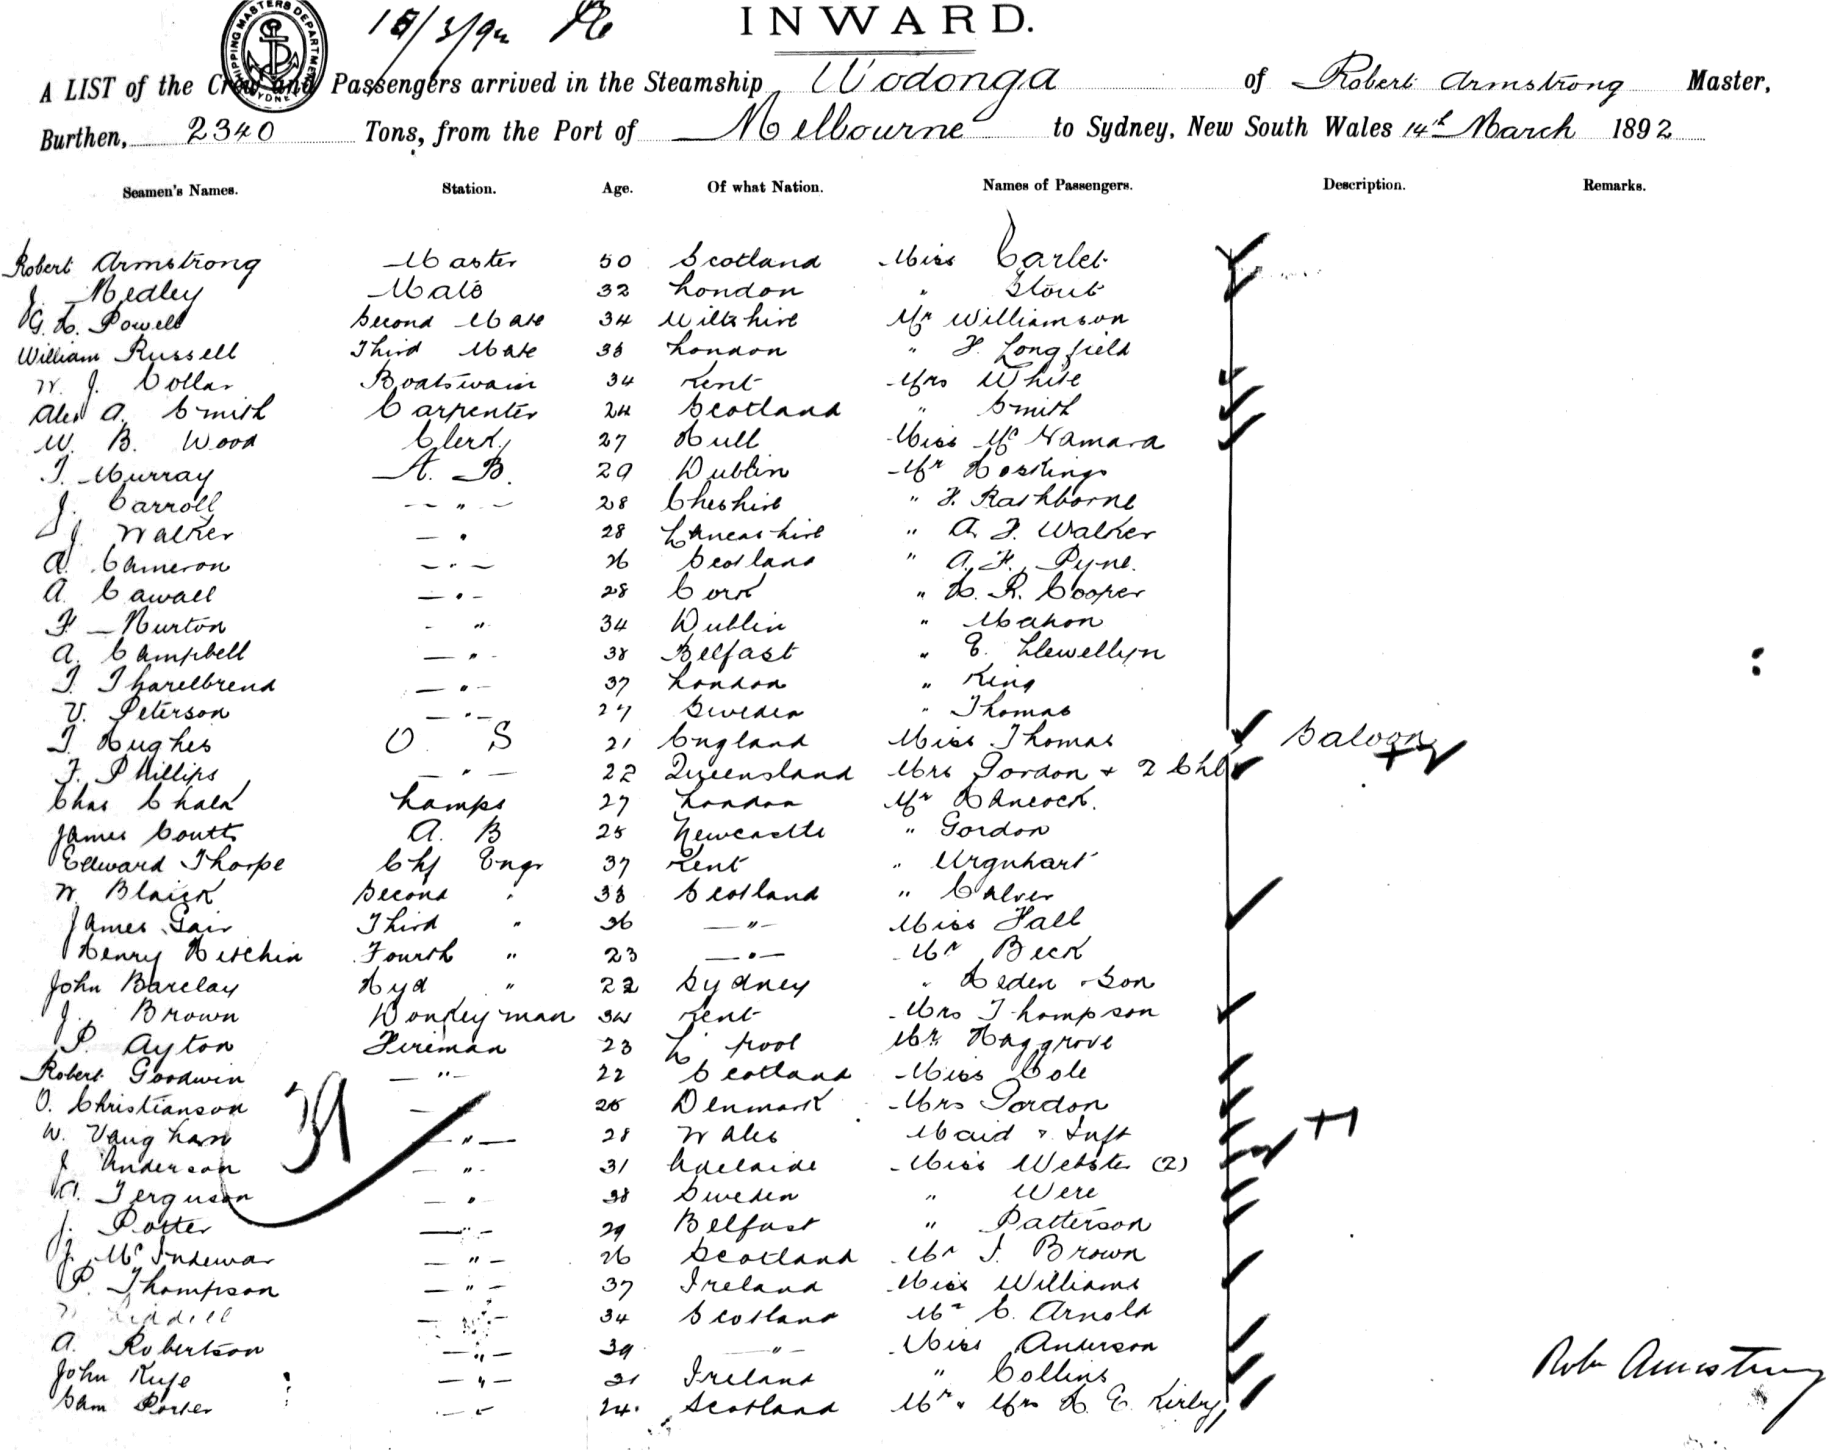 SHIPPING MASTERS DEPARTMENT SYDNEY
INWARD.
A LIST of the Crew and Passengers arrived in the Steamship Wodonga of Robert Armstrong Master,
Burthen, 2340 Tons, from the Port of Melbourne to Sydney, New South Wales 14th March 1892
Seamen's Names. Station. Age. Of what Nation. Names of Passengers. Description. Remarks.
Robert Armstrong Master 50 Scotland Miss Carlet
J. Medley Mate 32 London " Stout
G. H. Powell Second Mate 34 Wiltshire Mr Williamson
William Russell Third Mate 38 London " F. Longfield
W. J. Collar Boatswain 34 Kent Mrs White
Alex A. Smith Carpenter 24 Scotland " Smith
W. B. Wood Clerk 27 Hull Miss McNamara
T. Murray A. B. 29 Dublin Mr Hoskings
J. Carroll " 28 Cheshire " F. Rashborne
J. Walker " 28 Lancashire " A. F. Walker
A. Cameron " 26 Scotland " A. F. Pyne.
A. Cawall " 28 Cork " H. R. Cooper
F. Murton " 34 Dublin " Mahon
A. Campbell " 38 Belfast " E. Llewellyn
T. Tharelbrend " 37 London " King
V. Peterson " 27 Sweden " Thomas
T. Hughes O S 21 England Miss Thomas Saloon
F. Phillips " 22 Queensland Mrs Gordon + 2 Chl
Chas Chalk Lamps 27 London Mr Hancock.
James Coutts A. B 25 Newcastle " Gordon
Edward Thorpe Chf Engr 37 Kent " Urquhart
W. Blaick Second " 38 Scotland " Calver
James Gair Third " 36 " Miss Hall
Henry Hitchin Fourth " 23 " Mr Beck
John Barclay Hyd " 22 Sydney " Heden & Son
J. Brown Donkeyman 34 Kent Mrs Thompson
P. Ayton Fireman 23 L'pool Mr Haggrove
Robert Goodwin " 22 Scotland Miss Cole
O. Christianson " 25 Denmark Mrs Gordon
W. Vaughan " 28 Wales Maid & Inft
J. Anderson " 31 Adelaide Miss Webster (2)
A. Ferguson " 38 Sweden " Were
J. Potter " 29 Belfast " Patterson
J. McIndewar " 26 Scotland Mr J. Brown
P. Thompson " 37 Ireland Miss Williams
Liddell " 34 Scotland Mr C. Arnold
A. Robertson " 39 " Miss Anderson
John Kuje " 31 Ireland " Collins
Sam Porter " 24 Scotland Mr & Mrs H. E. Kirby
Robt Armstrong